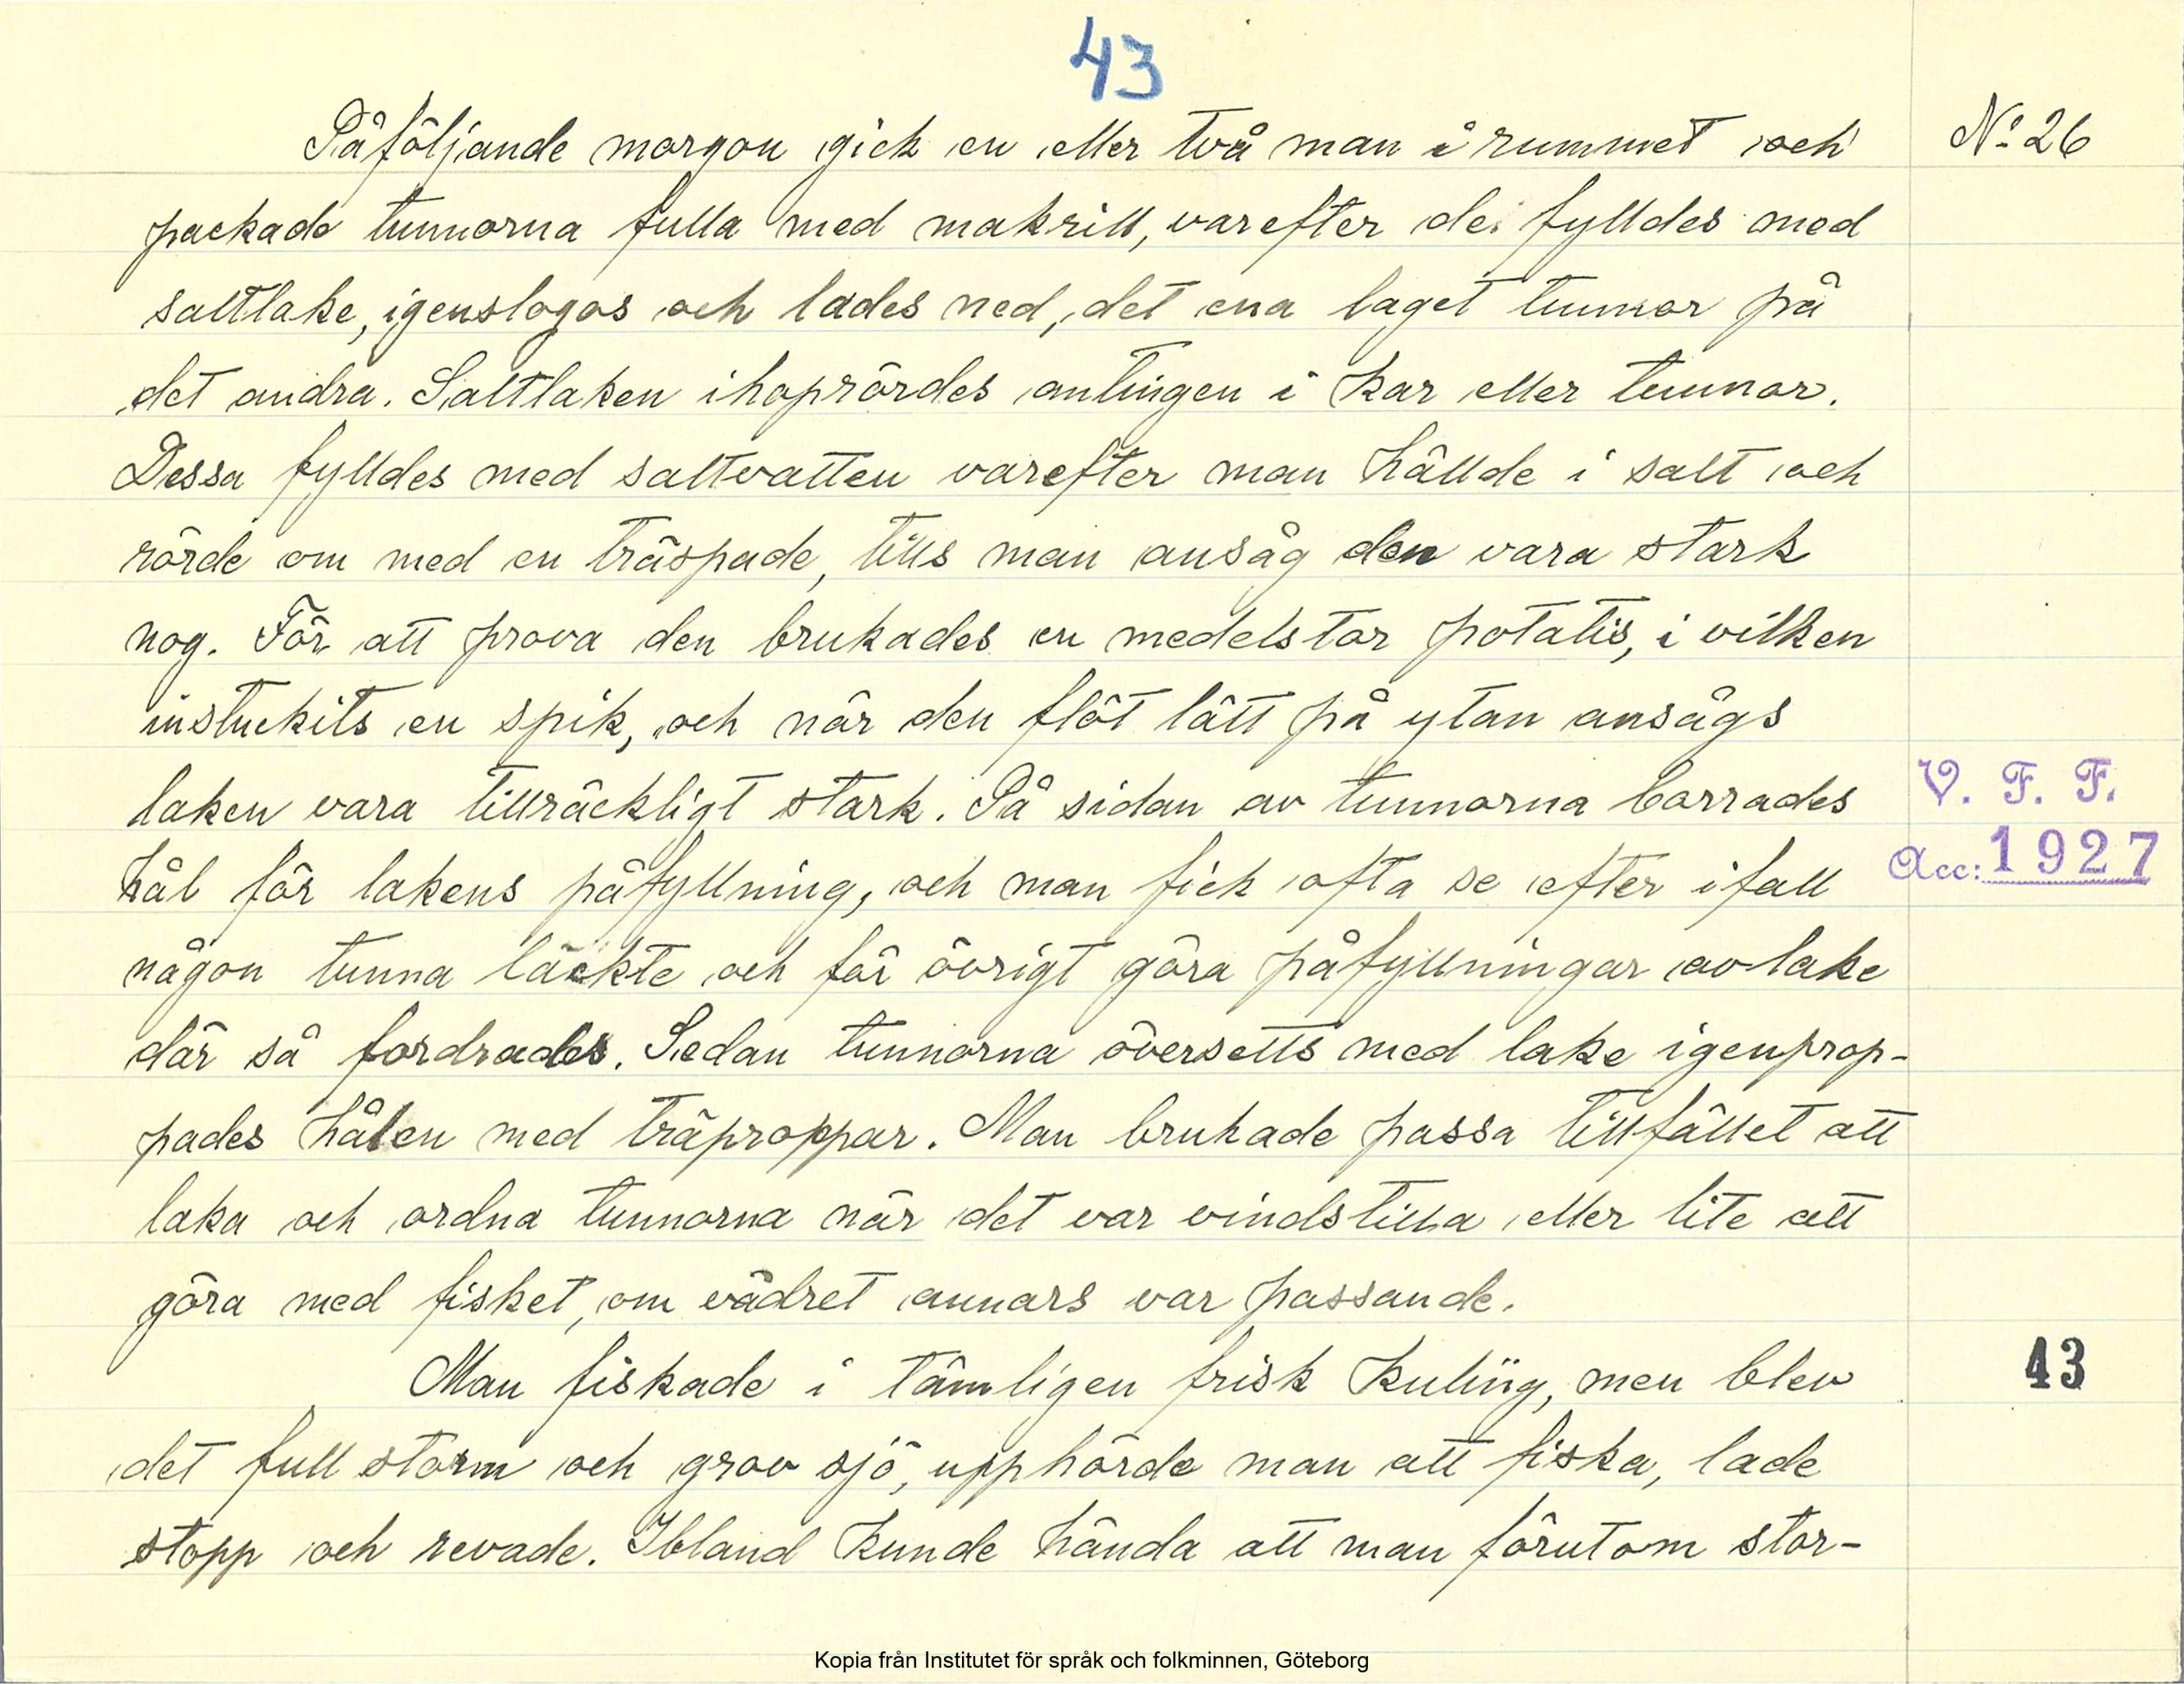 43
Påföljande morgon gick en eller två man i rummet och
No 26
packade tunnorna fulla med makrill, varefter de fylldes med
saltlake, igenslogos och lades ned, det ena laget tunnor på
det andra. Saltlaken ihoprördes antingen i kar eller tunnor.
Dessa fylldes med saltvatten varefter man hällde i salt och
rörde om med en träspade, tills man ansåg den vara stark
nog. För att prova den brukades en medelstor potatis, i vilken
instuckits en spik, och när den flöt lätt på ytan ansågs
laken vara tillräckligt stark. På sidan av tunnorna borrades
hål för lakens påfyllning, och man fick ofta se efter ifall
någon tunna läckte och för övrigt göra påfyllningar av lake
där så fordrades. Sedan tunnorna översetts med lake igenprop-
pades hålen med träproppar. Man brukade passa tillfället att
laka och ordna tunnorna när det var vindstilla eller lite att
göra med fisket, om vädret annars var passande.
Man fiskade i tämligen frisk kuling, men blev
det full storm och grov sjö, upphörde man att fiska, lade
stopp och revade. Ibland kunde hända att man förutom stor-
V. F. F.
Acc: 1927
43
Kopia från Institutet för språk och folkminnen, Göteborg